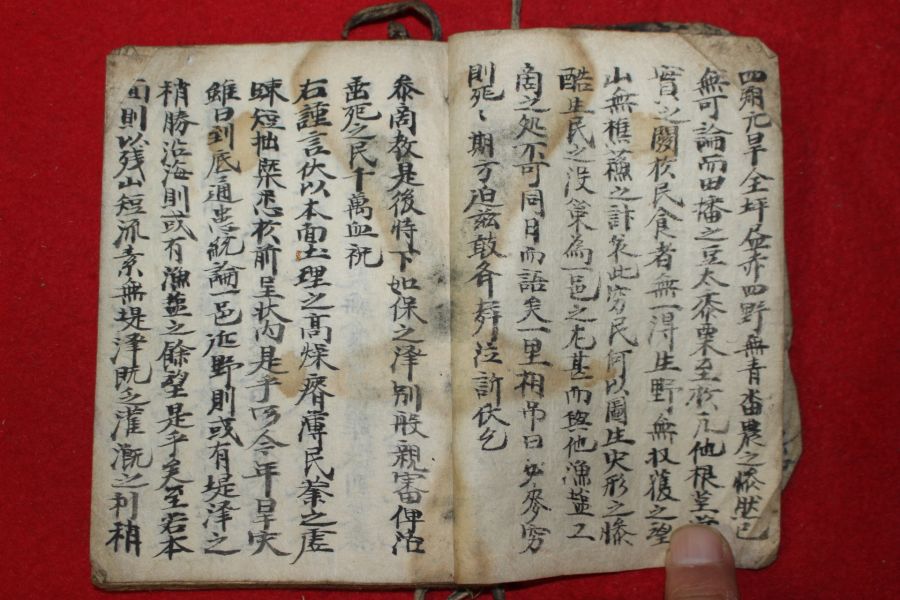 四朔亢旱全坪盡赤四野無青畓農之慘狀已
無可論而田播之豆太黍粟至於凡他根莖
實之關於民食者無一得生野無収獲之望
山無樵蘓之計哀此窮民何以圖生灾形之慘
酷生民之沒策為一邑之尤甚而與他漁盐工
商之処不可同日而語矣一里相吊曰如麥窮
則死〻期方迫玆敢齊葬泣訴伏乞
叅商教是後特下如保之澤別般親審俾活
垂死之民千萬血祝
右謹言伏以本面土理之高燥瘠薄民業之虛
踈短拙槩悉於前呈狀內是乎所今年旱灾
雖曰到底通患統論一邑近野則或有堤澤之
稍勝沿海則或有漁盐之餘望是乎矣至若本
面則以残山短流素無堤澤旣乏灌漑之利稍